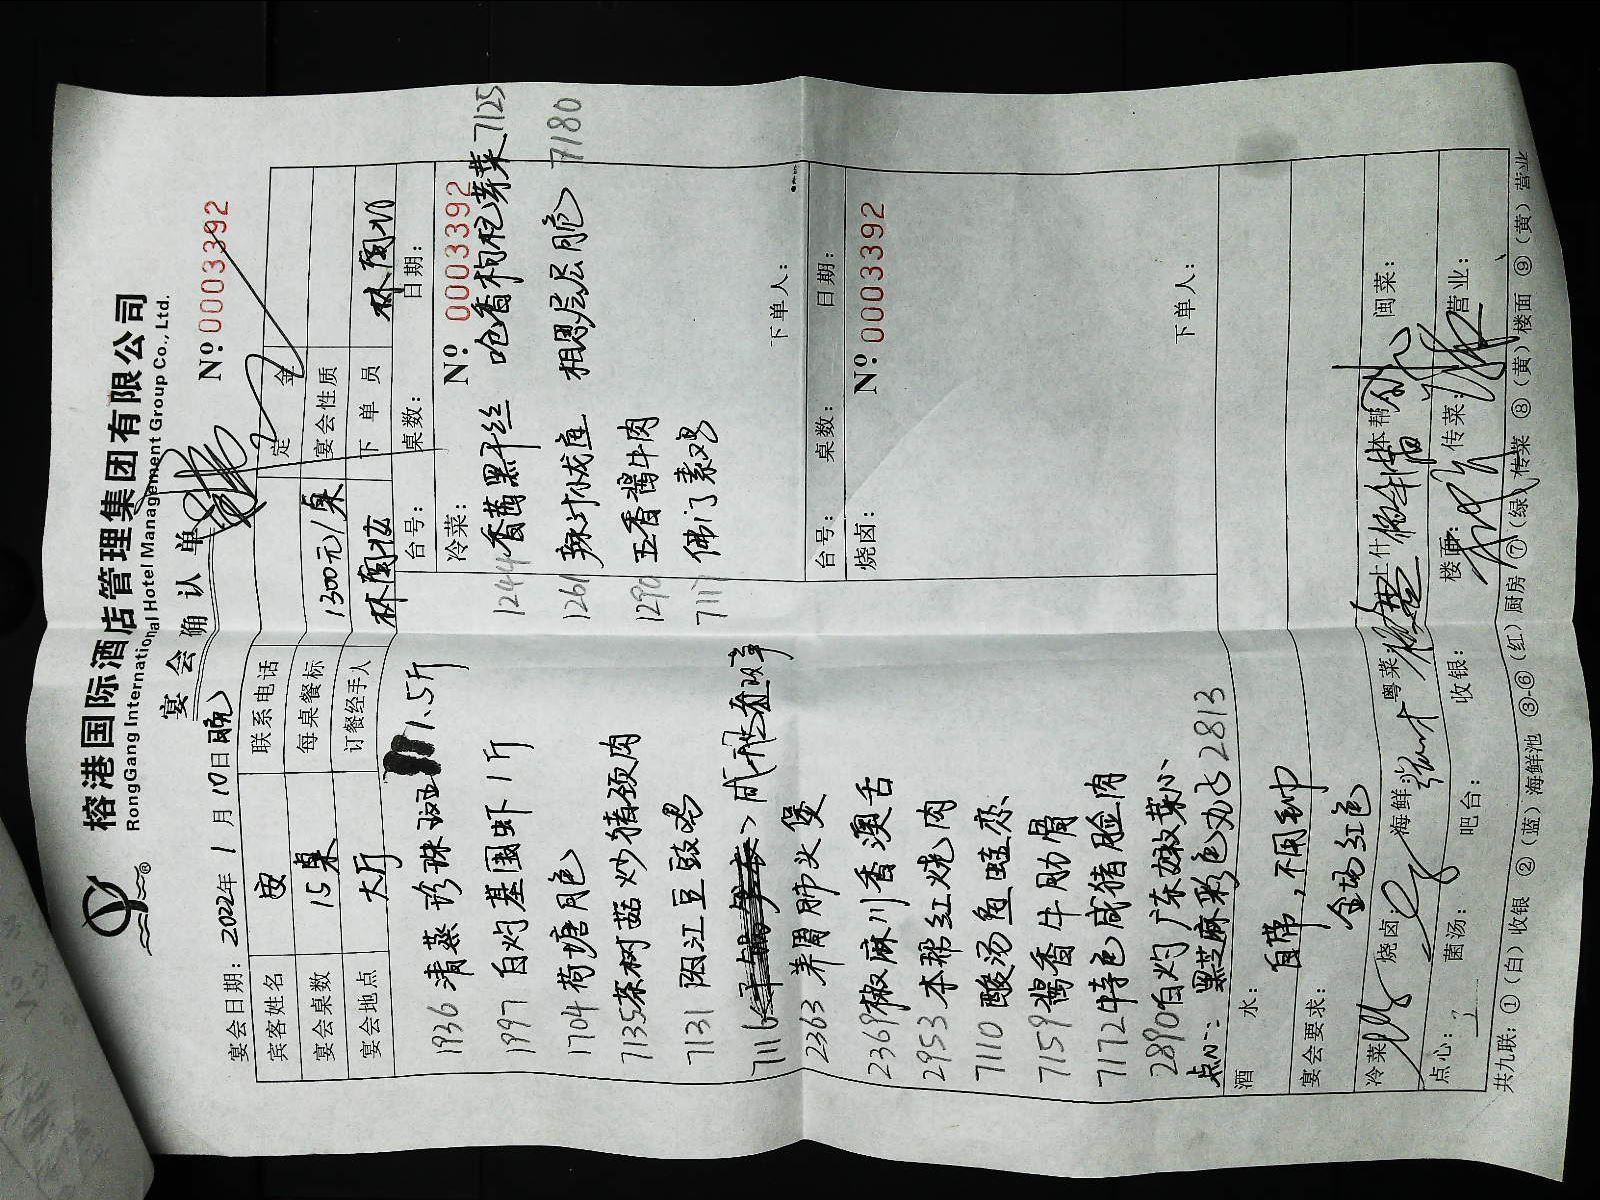 榕港国际酒店管理集团有限公司
RongGang International Hotel Management Group Co., Ltd.
宴会确认单
№ 0003392
宴会日期：2022年 1 月 10 日 晚
宾客姓名 联系电话 定金
宴会桌数 15桌 每桌餐标 1300元/桌 宴会性质
宴会地点 大厅 订餐经手人 下单员
台号： 桌数： 日期：
冷菜： № 0003392
1244 香茜黑干丝 呛香枸杞芽菜 7125
1261 相思层层脆 7180
1290 五香酱牛肉
7117 佛门素鸡
下单人：
1936 清蒸珍珠斑 1.5斤
1997 白灼基围虾 1斤
1704 荷塘月色
7135 茶树菇炒猪颈肉
7131 阳江豆豉鸡
7116
2363 养胃肺头煲
2369 椒麻川香澳舌
2953 本帮红烧肉
7110
7159 酱香牛肋骨
7172 特色咸猪脸肉
2890 白灼广东菜心
点心： 2813
台号： 桌数： 日期：
烧卤： № 0003392
下单人：
酒水： 自带，不用
宴会要求： 全场红色
冷菜： 烧卤： 海鲜： 粤菜： 上什： 本帮： 闽菜：
点心： 菌汤： 吧台： 收银： 楼面： 传菜： 营业：
共九联：①（白）收银 ②（蓝）海鲜池 ③-⑥（红）厨房 ⑦（绿）传菜 ⑧（黄）楼面 ⑨（黄）营业